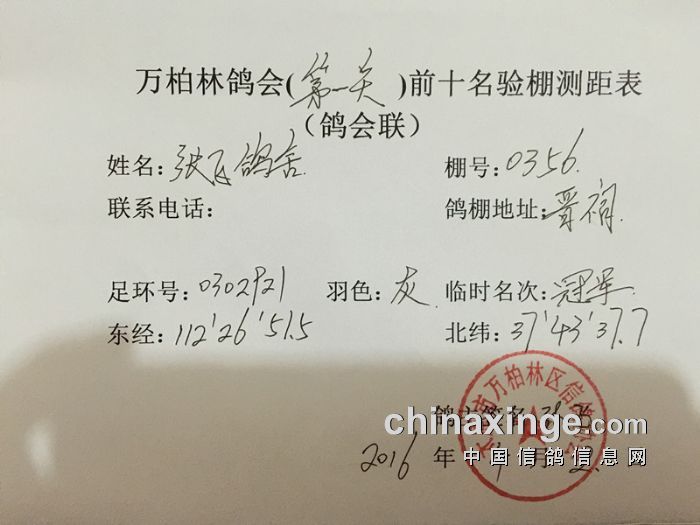 万柏林鸽会(第一关)前十名验棚测距表
（鸽会联）
姓名：张飞鸽舍 棚号：0356
联系电话： 鸽棚地址：晋祠
足环号：0302921 羽色：灰 临时名次：冠军
东经：112'26'51.5 北纬：37'43'37.7
鸽主签名
2016 年 月 2
市万柏林区信鸽
chinaxinge.com
中国信鸽信息网